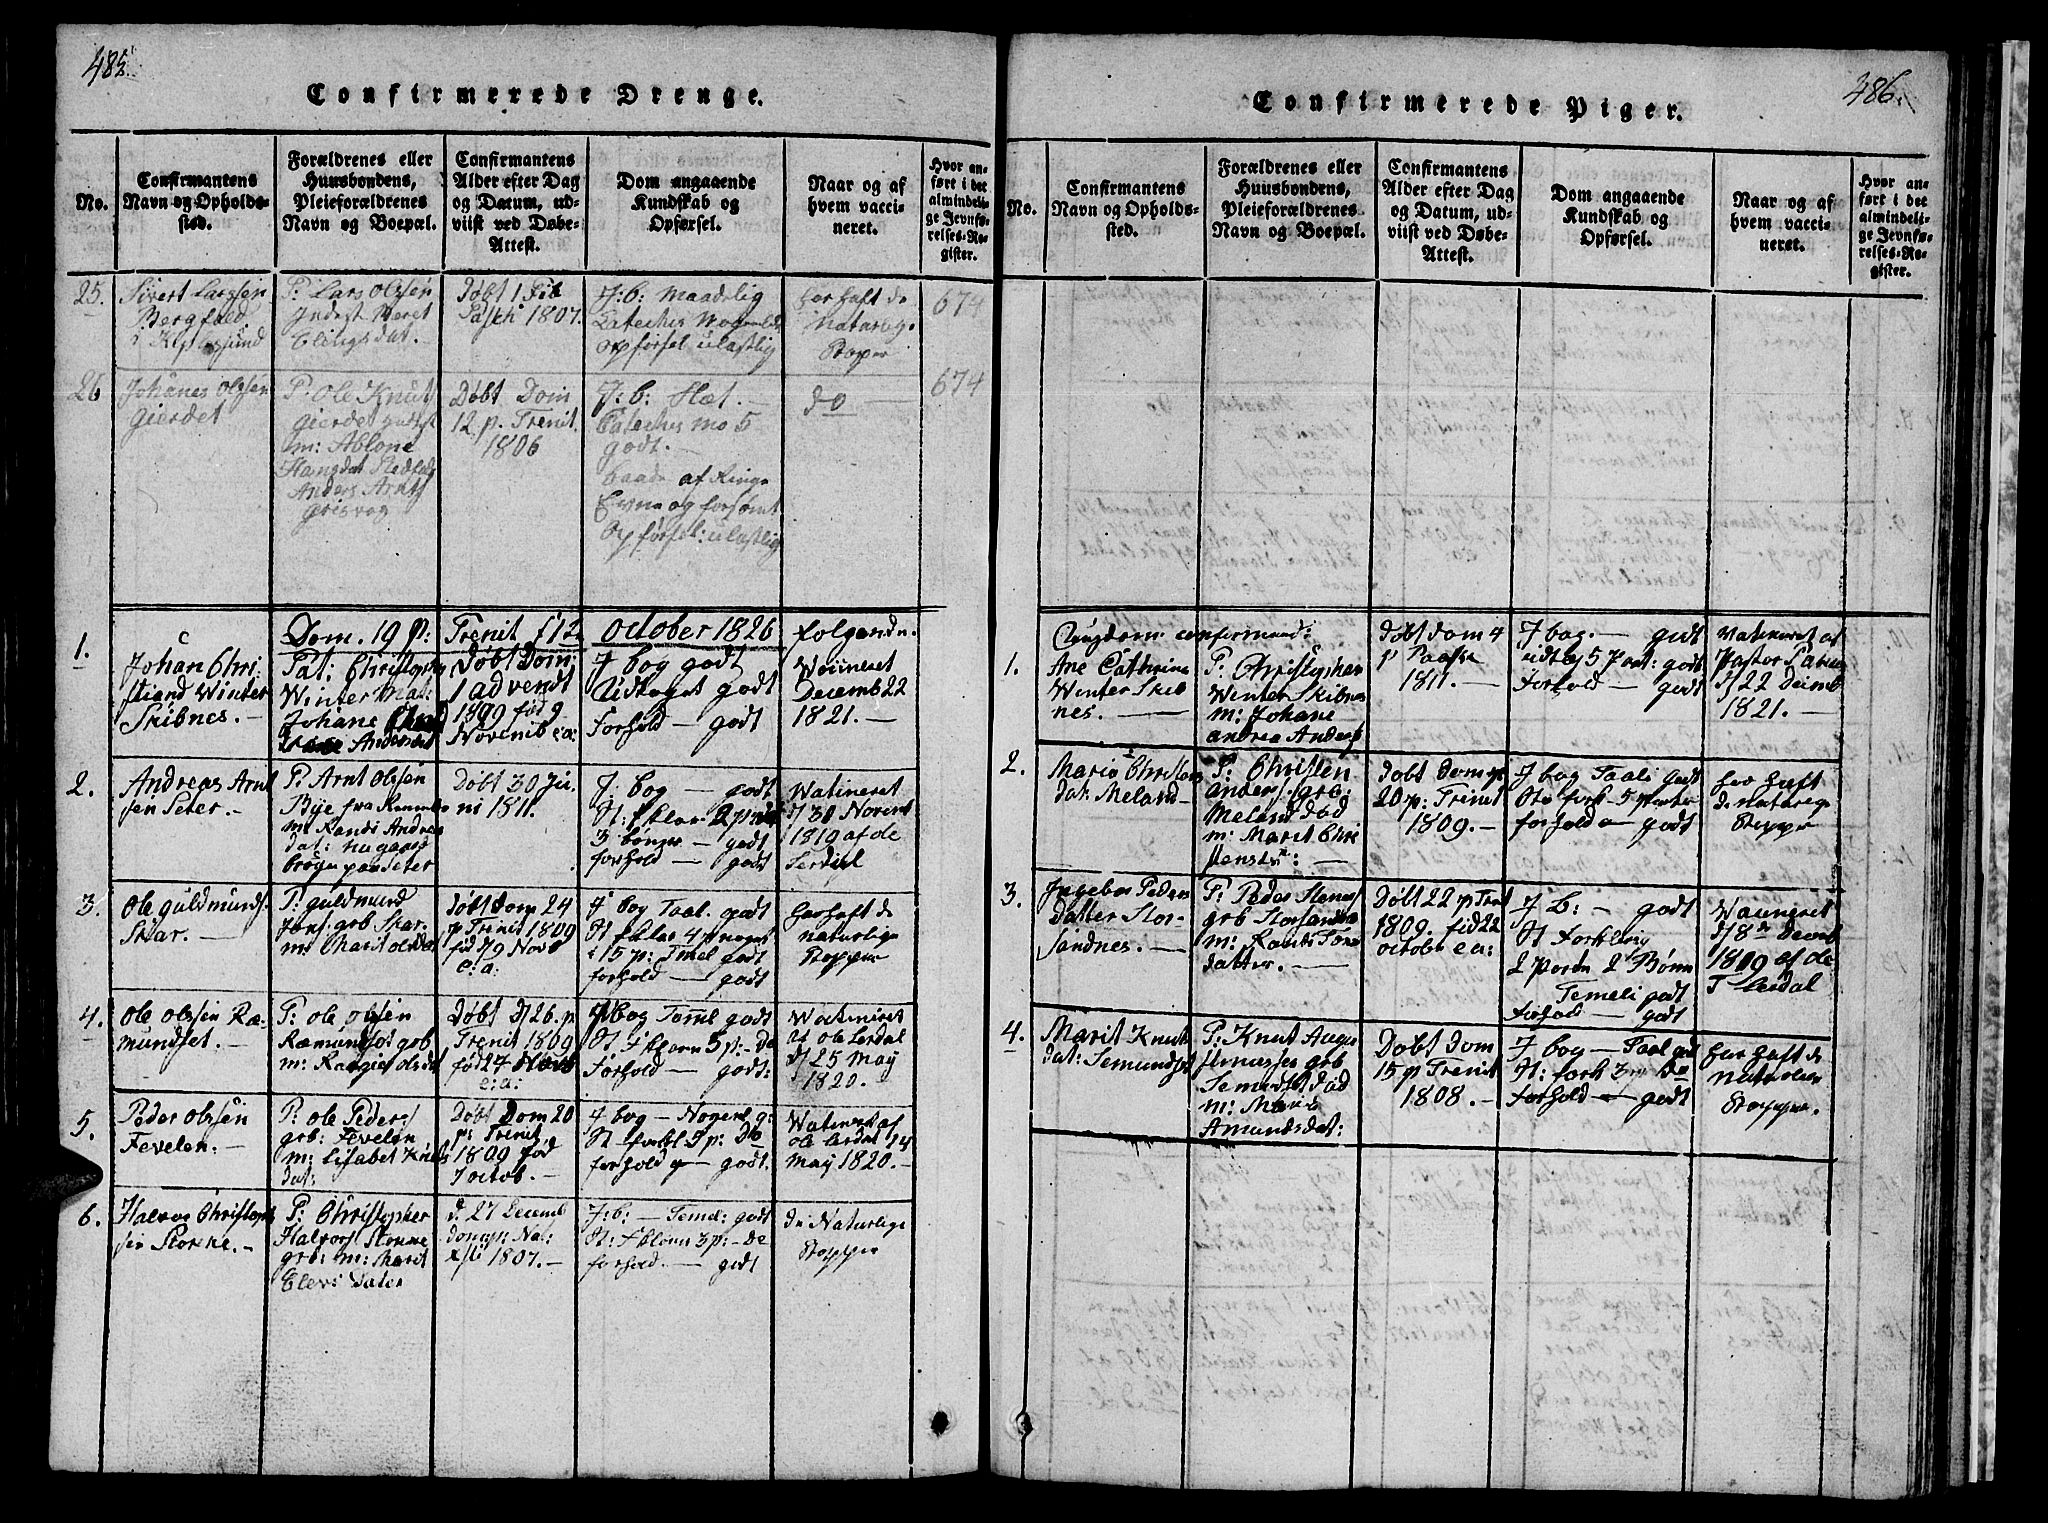 485.
Confirmerede Drenge.
No.
Confirmantens
Navn og Opholds-
sted.
Forældrenes eller
Huusbondens,
Pleieforældrenes
Navn og Boepæl.
Confirmantens
Alder efter Dag
og Datum, ud-
viist ved Døbe-
Attest.
Dom angaaende
Kundskab og
Opførsel.
Naar og af
hvem vacci-
neret.
Hvor an-
ført i det
almindeli-
ge Jevnfø-
relses-Re-
gister.
25.
Sivert Larssen
Bergfald
P: Lars Olssen
Inderst Beret
Elingsdat.
Døbt 1 Fer
Pasch 1807.
J: b: Maadelig
opførsel ulastlig
har haft de
Naturlig
Kopper
674
26
Johanes Olssen
Gierdet
P. Ole Knut
gierdet
m: Ablone
Anders Arnts
grisvog
Døbt Dom
12 p. Trenit.
1806
J: b: Slæt.
Cateches mo 5
godt.
baade af Ringe
Evne og forsømt
Opførsel: ulastlig
do
674
Dom. 19 p: Trenit d 1 October 1826 følgende.
1.
Johan Chri
stian Winter
Skibnes.
Pat: Christoph
Winter Mat:
Johane
Andersdat
Døbt Dom:
1 advendt
1809 fød 9
Novemb e:a:
J bog godt
Udtoget godt
Forhold godt
Waxineret
Decemb 22
1821.
2.
Andreas Arnt
sen Seter.
P: Arnt Olssen
Bye fra
m: Randi Andreas
dat: nu gaard
bruger paa Seter
Døbt 30 Ju
ni 1811.
J: bog godt
3 bønner godt
forhold godt
Watineret
d 30 Novemb
1819 af Ole
Lerdal
3.
Ole Guldmunds.
Skar.
P: Guldmund
Jons. grb Skar.
m: Marit Olsdat
døbt Dom 24
p Trenit 1809
fød 19 Novb
e: a:
J bog Taal. godt
forhold godt
har haft de
naturlige
Kopper
4.
Ole Olssen Ræ-
mundset.
P: Ole Olssen
Ræmundset grb
m: Rangie Olsdat
Døbt D 26. p
Trenit 1809
fød 27 Novb
e: a:
J bog Temel godt
St Forklaren 5 p: Do
Forhold godt:
Watineret
af Ole Lerdal
d 25 May
1820.
5.
Peder Olssen
Fevelen.
P: Ole Peders
grb: Fevelen
m: Lisabet Knuts
dat:
Døbt Dom 20
p: Trenit
1809 fød
7 octob.
J bog Nogenl g:
forhold godt.
Watineret af
Ole Lerdal 14
May 1820.
6.
Halvor Christoph
sen Storøe.
P: Christopher
Halvors Storøe
grb: m: Marit
Elevs Dater
d: 27 Decemb
Dom p: Nat:
xsti 1807.
J: b: Temel: godt
St: Fklaren 3 p: Do
forhold. godt
De Naturlige
Kopper
486.
Confirmerede Piger.
No.
Confirmantens
Navn og Opholds-
sted.
Forældrenes eller
Huusbondens,
Pleieforældrenes
Navn og Boepæl.
Confirmantens
Alder efter Dag
og Datum, ud-
viist ved Døbe-
Attest.
Dom angaaende
Kundskab og
Opførsel.
Naar og af
hvem vacci-
neret.
Hvor an-
ført i det
almindeli-
ge Jevnfø-
relses-Re-
gister.
Ungdom confirmand:
1.
Ane Cathrine
Winter Skib
nes.
P: Christopher
Winter Skibnes
m: Johane
andrea Anders
Døbt dom 4
p Paaske
1811.
J bog. godt
udtog 5 Part: godt
Forhold godt
Watineret af
Pastor
d 22 Decemb
1821.
2.
Marie Christens
dat: Meland
P: Christen
anders. grb:
Meland død
m: Marit Chri
stensdr:
Døbt Dom
20 p: Trenit
1809.
J bog Taali godt
Ste fork 5 parter
forhold godt
har haft
de naturlige
Kopper
3.
Ingebor Peders
datter Stor-
sandnes.
P: Peder Stenes
grb Storsandnes
m: Randi Tore
datter.
Døbt 22 p Trnt
1809. fød 22
october e a:
J b: godt
St Forklaring
2 parter 2 Bønn
Temeli godt
Forhold godt
Waxineret
d 18 Decmb
1819 af Ole
Lerdal
4.
Marit Knuts
dat: Semundset
P: Knut Auge
grb
Semundset død
m: Marit
Amundsdat:
Døbt Dom
15 p Trenit
1808.
J bog Taal god
St: fork 3 p Do
Forhold godt
har haft de
Naturlige
Kopper.